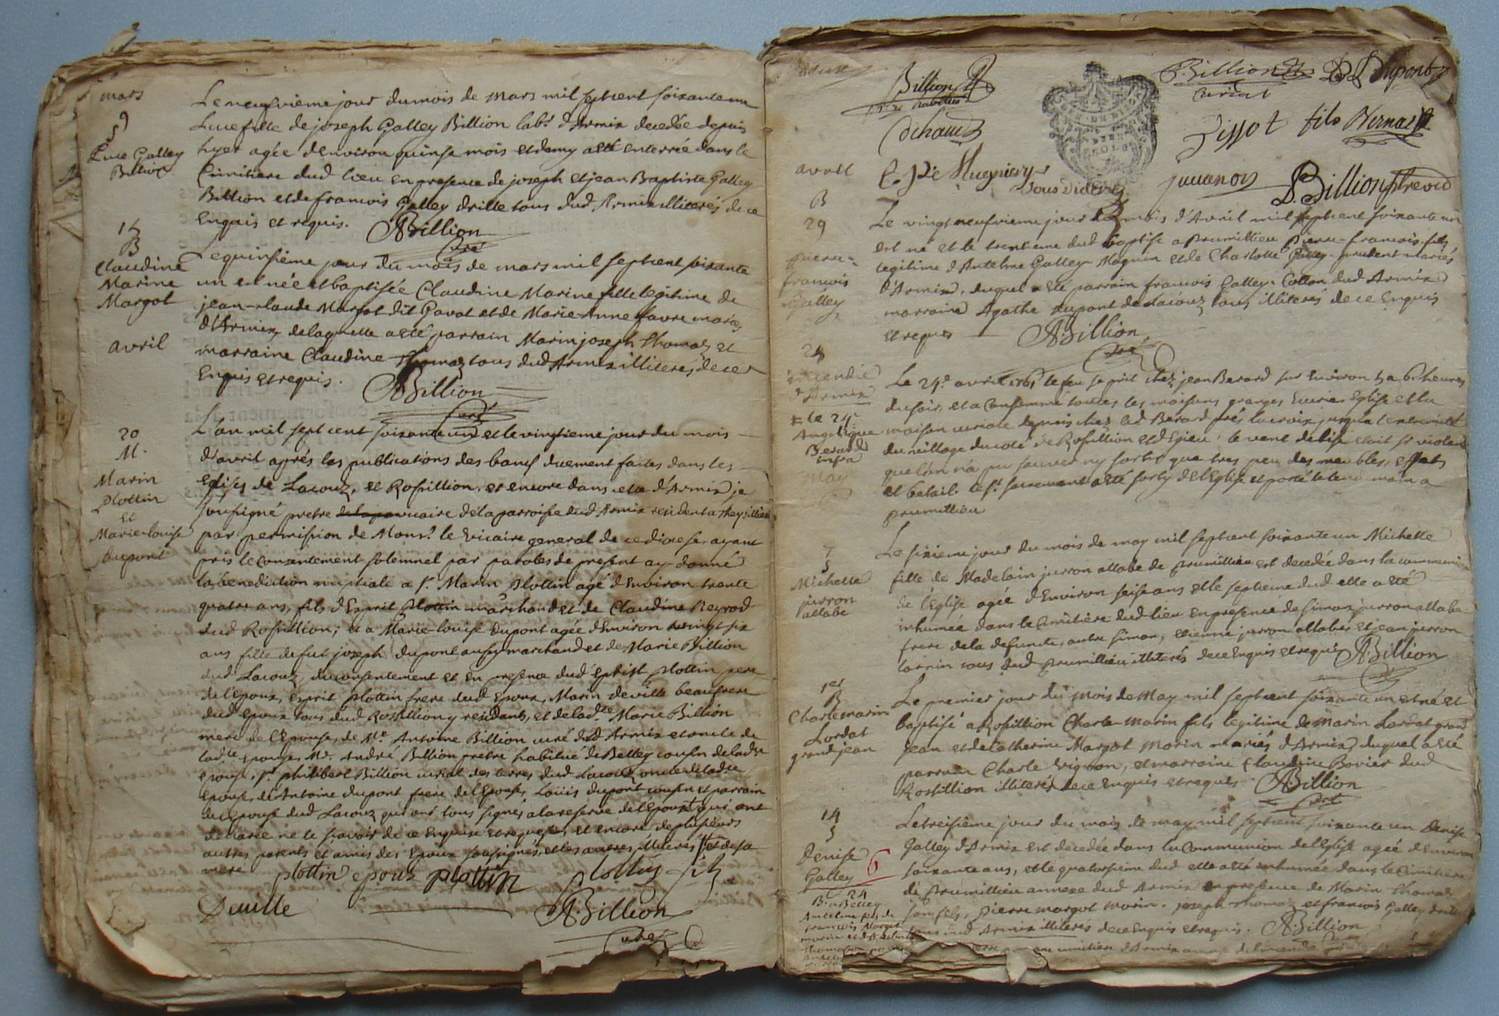 mars
9
S
Luce Galley
Billion
Le neufvieme jour du mois de Mars mil septcent soixante un
Luce fille de joseph Galley Billion labr d'Armix decedée depuis
hyer agée d'Environ quinse mois et demy a eté enterrée dans le
Cimitiere dud lieu en presence de joseph et jean Baptiste Galley
Billion et de francois Galley drille tous dud Armix illiterés de ce
Enquis et requis. ABillion
curé
15
B
Claudine
Marine
Margot
Le quinsième jour du mois de mars mil septcent soixante
un est née et baptisée Claudine Marine fille legitime de
jean-claude Margot dit Gavat et de Marie Anne favre mariés
d'Armix de laquelle a eté parrain Marin joseph Thomas et
marraine Claudine Thomas tous dud Armix illiterés de ce
Enquis et requis. ABillion
curé
avril
20
M.
Marin
plottin
et
Marie-louise
dupont
L'an mil sept cent soixante un et le vingtieme jour du mois
d'avril après les publications des bancs duement faites dans les
Eglises de Lacoux, et Rossillion, et encore dans cela d'Armix je
soussigné pretre vicaire de la parroisse dud Armix resident a
par permission de Monsr. le vicaire general de ce diocese, ayant
pris le consentement solemnel par paroles de present ay donné
la benediction nuptiale a sr. Marin plottin agé d'Environ trente
quatre ans, fils d'Esprit plottin marchand et de Claudine Reyrod
dud Rossillion; et a Marie-louise dupont agée d'Environ vingt six
ans fille de fut joseph dupont aussy marchand et de Marie Billion
dud Lacoux, du consentement et en presence dud Esprit plottin pere
de l'epoux, Esprit plottin frere dud Epoux, Marin deville beaufrere
dud Epoux tous dud Rossilliony residents, et de ladte Marie Billion
mere de l'Epouse, de Mr. Antoine Billion curé dud Armix et oncle de
ladte epouse, Mr. André Billion pretre habitué de Belley cousin de ladte
Epouse, sr. philibert Billion curial des terres dud Lacoux oncle de ladte
epouse, de Antoine dupont frere de l'Epouse, Louis dupont cousin et parrain
de l'epouse dud Lacoux qui ont tous signés a la reserve de l'Epouse qui ont
declaré ne le scavoir de ce Enquise et requise, et encore de plusieurs
autres parents et amis des Epoux soussignés, et les autres illiterés et de sa
mere plottin epoux plottin plottin fils
Deville ABillion
curé
Billion
C. Billion
curial
D. Dupont
dehaud
Tissot fils Vernas
C. Pre Mugniery
sous diacre
juuanon
D. Billion
avril
B
29
pierre-
francois
Galley
Le vingt neufvieme jour du mois d'Avril mil septcent soixante un
est né et le trentieme dud baptisé a Prumillieu Pierre-francois fils
legitime d'Antelme Galley Magnin et de Charlotte mariés
d'Armix, duquel a eté parrain francois Galley Cotton dud Armix
marraine Agathe dupont de Lacoux tous illiterés de ce Enquis
et requis ABillion
curé
24
incendie
d'Armix
le 24
Angelique
Berard
infra
may
Le 24e. avril 1761 le feu se prit chez jean Berard sur environ les 6 heures
du soir, et a Consommé toutes les maisons granges Ecurie Eglise et la
maison curiale depuis chez led Berard près la croix jusqu'a l'extremité
du village du coté de Rossillion et d'Epieu: le vent de bise etoit si violent
que l'on n'a pu sauver ny sortir que tres peu des meubles, effets
et betail. le St. sacrement a eté sorty de l'Eglise et porté le lendemain a
prumillieu
7
S
Michelle
jurron
allabe
Le sixieme jour du mois de may mil septcent soixante un Michelle
fille de Madelain jurron allabe de Prumillieu est decedée dans la communion
de l'Eglise agée d'Environ seise ans et le septieme dud elle a eté
inhumée dans le cimitière dud lieu en presence de Simon jurron allabe
frere de la defunte, autre Simon, Etienne jurron allabe et jean jurron
tous dud prumillieu illiterés de ce Enquis et requis ABillion
1er
B
Charle marin
Lordat
grandjean
Le premier jour du mois de May mil septcent soixante un est né et
baptisé a Rossillion Charle Marin fils legitime de Marin Lordat grand
jean et de Catherine Margot Morin mariés d'Armix, duquel a eté
parrain Charle vignon, et marraine Claudine Bovier dud
Rossillion illiterés de ce Enquis et requis ABillion
curé
14
S
Denise
Galley 6
Le treisième jour du mois de may mil septcent soixante un Denise
Galley d'Armix est decedée dans la Communion de l'Eglise agée d'Environ
soixante ans, et le quatorsieme dud elle a eté inhumée dans le Cimitiere
de Prumillieu annexe dud Armix en presence de Marin Thomas
son fils, pierre margot morin, joseph thomas et francois Galley drille
tous dud Armix illiterés de ce Enquis et requis. ABillion
24
B. a Belley
Anthelme fils de
francois Margot
morin